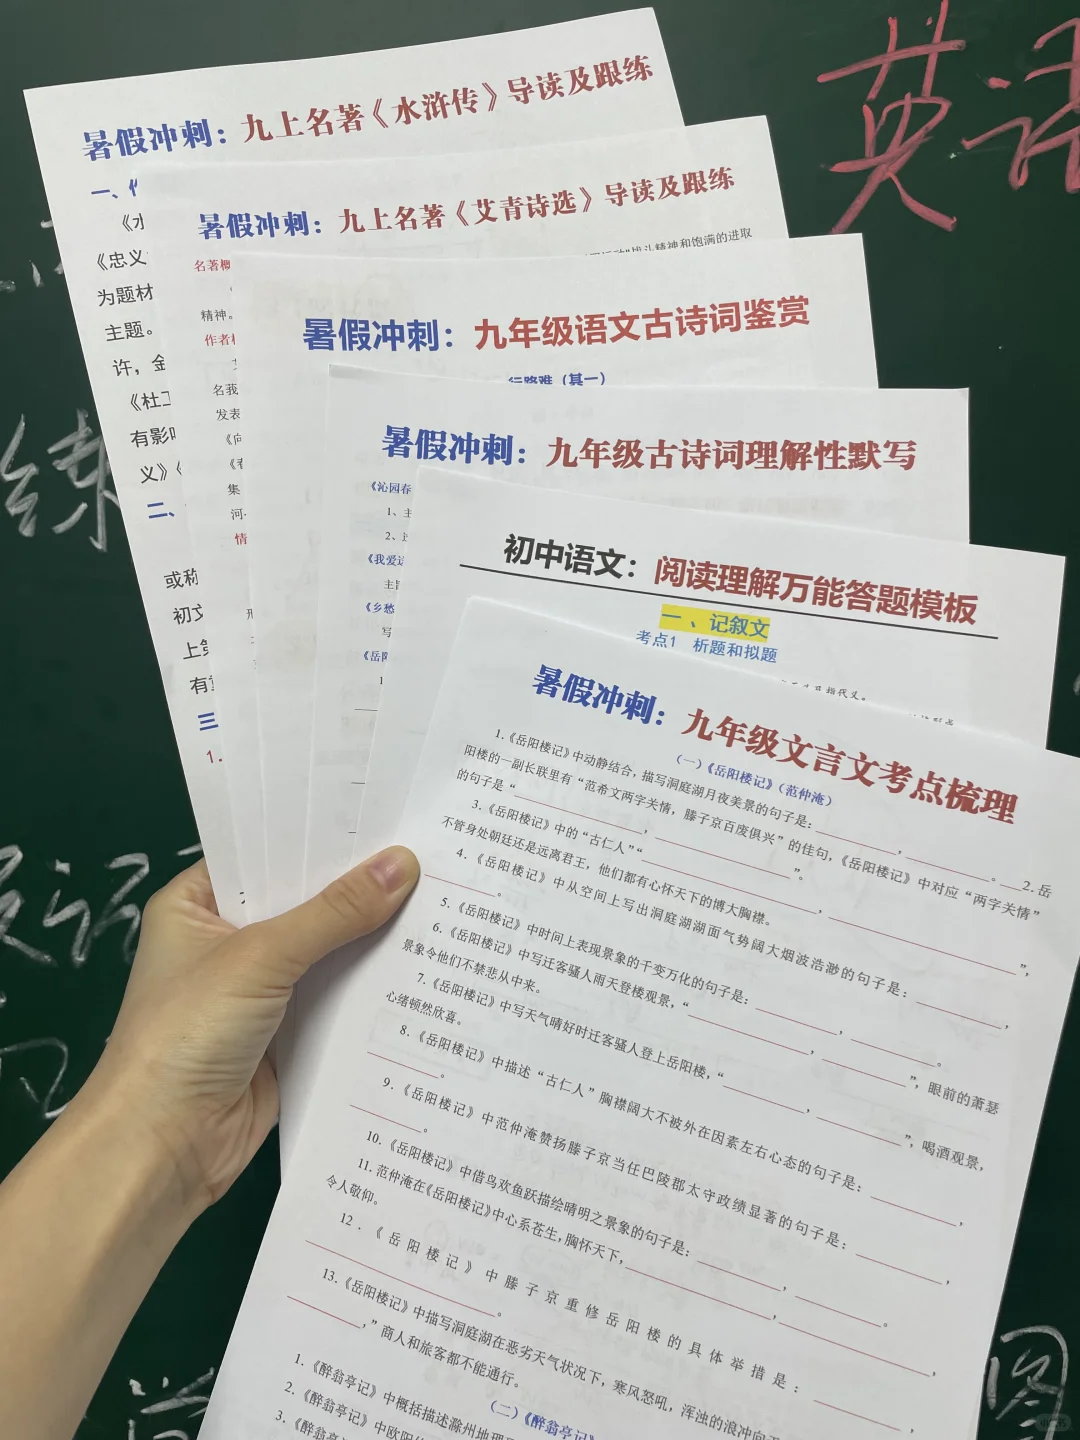 英语
暑假冲刺：九上名著《水浒传》导读及跟练
一、
《水
《忠义
为题材
主题。
许，金
《杜
有影响
义》《
二、
或称
初文
上第
有
三
1.
暑假冲刺：九上名著《艾青诗选》导读及跟练
战斗精神和饱满的进取
名著概
精神。
作者
名我
发表
《向
《春
集
河
情
暑假冲刺：九年级语文古诗词鉴赏
行路难（其一）
暑假冲刺：九年级古诗词理解性默写
《沁园春
1、
2、
《我爱这
主旨
《乡愁
写
《岳阳
1
初中语文：阅读理解万能答题模板
一 、记叙文
考点1 析题和拟题
暑假冲刺：九年级文言文考点梳理
（一）《岳阳楼记》（范仲淹）
1.《岳阳楼记》中动静结合，描写洞庭湖月夜美景的句子是：________，________。___2. 岳
阳楼的一副长联里有“范希文两字关情，滕子京百废俱兴”的佳句，《岳阳楼记》中对应“两字关情”
的句子是“________，________”。
3.《岳阳楼记》中的“古仁人”“________，________”，
不管身处朝廷还是远离君王，他们都有心怀天下的博大胸襟。
4.《岳阳楼记》中从空间上写出洞庭湖湖面气势阔大烟波浩渺的句子是：________，
________。
5.《岳阳楼记》中时间上表现景象的千变万化的句子是：________，________。
6.《岳阳楼记》中写迁客骚人雨天登楼观景，“________，________”，眼前的萧瑟
景象令他们不禁悲从中来。
7.《岳阳楼记》中写天气晴好时迁客骚人登上岳阳楼，“________，________”，喝酒观景，
心绪顿然欣喜。
8.《岳阳楼记》中描述“古仁人”胸襟阔大不被外在因素左右心态的句子是：________，
________。
9.《岳阳楼记》中范仲淹赞扬滕子京当任巴陵郡太守政绩显著的句子是：________，
________。
10.《岳阳楼记》中借鸟欢鱼跃描绘晴明之景象的句子是：________，________。
11. 范仲淹在《岳阳楼记》中心系苍生，胸怀天下，________，________，
令人敬仰。
12.《岳阳楼记》中滕子京重修岳阳楼的具体举措是：
________。
13.《岳阳楼记》中描写洞庭湖在恶劣天气状况下，寒风怒吼，浑浊的浪冲向天
________，”商人和旅客都不能通行。
（二）《醉翁亭记
1.《醉翁亭记》中概括描述滁州地理
2.《醉翁亭记》中欧阳
3.《醉翁亭记
练
图